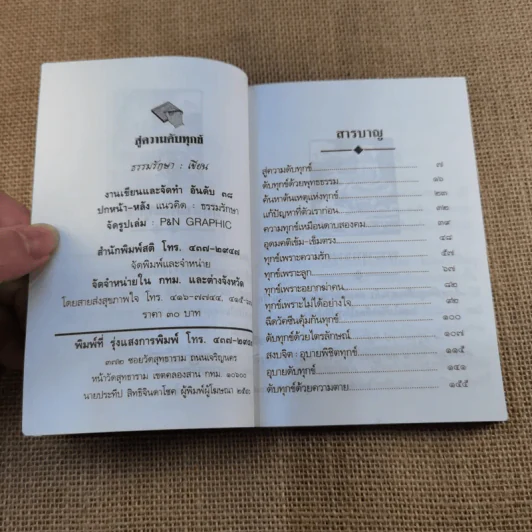 สู่ความดับทุกข์
ธรรมรักษา : เขียน
งานเขียนและจัดทำ อันดับ ๓๘
ปกหน้า-หลัง แนวคิด : ธรรมรักษา
จัดรูปเล่ม : P&N GRAPHIC
สำนักพิมพ์สติ โทร. ๔๓๗-๒๙๔๗
จัดพิมพ์และจำหน่าย
จัดจำหน่ายใน กทม. และต่างจังหวัด
โดยสายส่งสุขภาพใจ โทร. ๔๑๖-๗๗๔๔,
ราคา ๓๐ บาท
พิมพ์ที่ รุ่งแสงการพิมพ์ โทร.
๓๗๒ ซอยวัดสุทธาราม ถนนเจริญนคร
หน้าวัดสุทธาราม เขตคลองสาน กทม. ๑๐๖๐๐
นายประทีป สิทธิจินดาโชค ผู้พิมพ์ผู้โฆษณา
สารบาญ
สู่ความดับทุกข์ ๗
ดับทุกข์ด้วยพุทธธรรม ๑๖
ค้นหาต้นเหตุแห่งทุกข์ ๒๓
แก้ปัญหาที่ตัวเราก่อน ๓๒
ความทุกข์เหมือนดาบสองคม ๓๙
อุดมคติเข้ม-เข็มตรง ๔๘
ทุกข์เพราะความรัก ๕๗
ทุกข์เพราะลูก ๖๗
ทุกข์เพราะอยากฆ่าคน ๘๒
ทุกข์เพราะไม่ได้อย่างใจ ๙๒
ฉีดวัคซีนคุ้มกันทุกข์ ๑๐๐
ดับทุกข์ด้วยไตรลักษณ์ ๑๐๗
สงบจิต : อุบายพิชิตทุกข์ ๑๑๕
อุบายดับทุกข์ ๑๔๑
ดับทุกข์ด้วยความตาย ๑๕๕